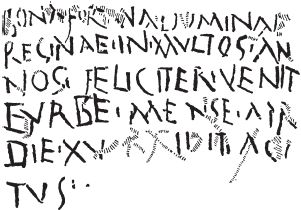 FORTVNA DOMINAE
REGINAE IN MVLTOS AN
NOS FELICITER VENIT
E VRBE · MENSE · APR
DIE · XV
TVS ·